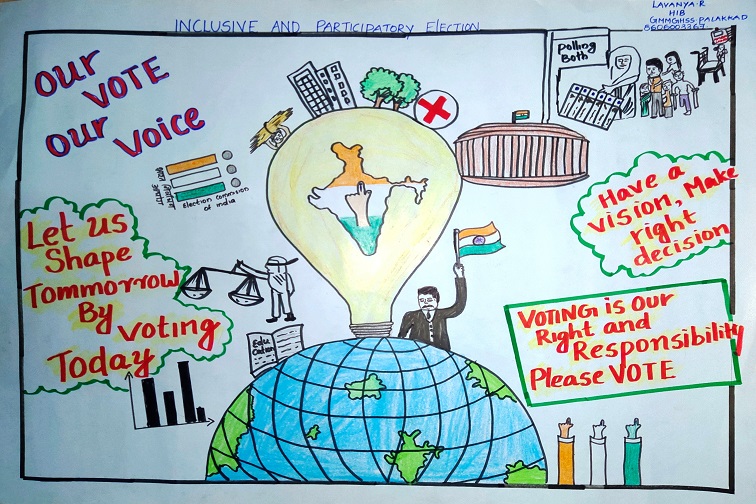 LAVANYA.R
HIB
GMMGHSS.PALAKKAD
8606003367
INCLUSIVE AND PARTICIPATORY ELECTION
OUR
VOTE
OUR
VOICE
Polling
Both
Election commission
of india
Let us
Shape
Tommorrow
By
Voting
Today
Have a
vision, Make
right
decision
Edu
cation
VOTING is OUR
Right and
Responsibility
Please VOTE